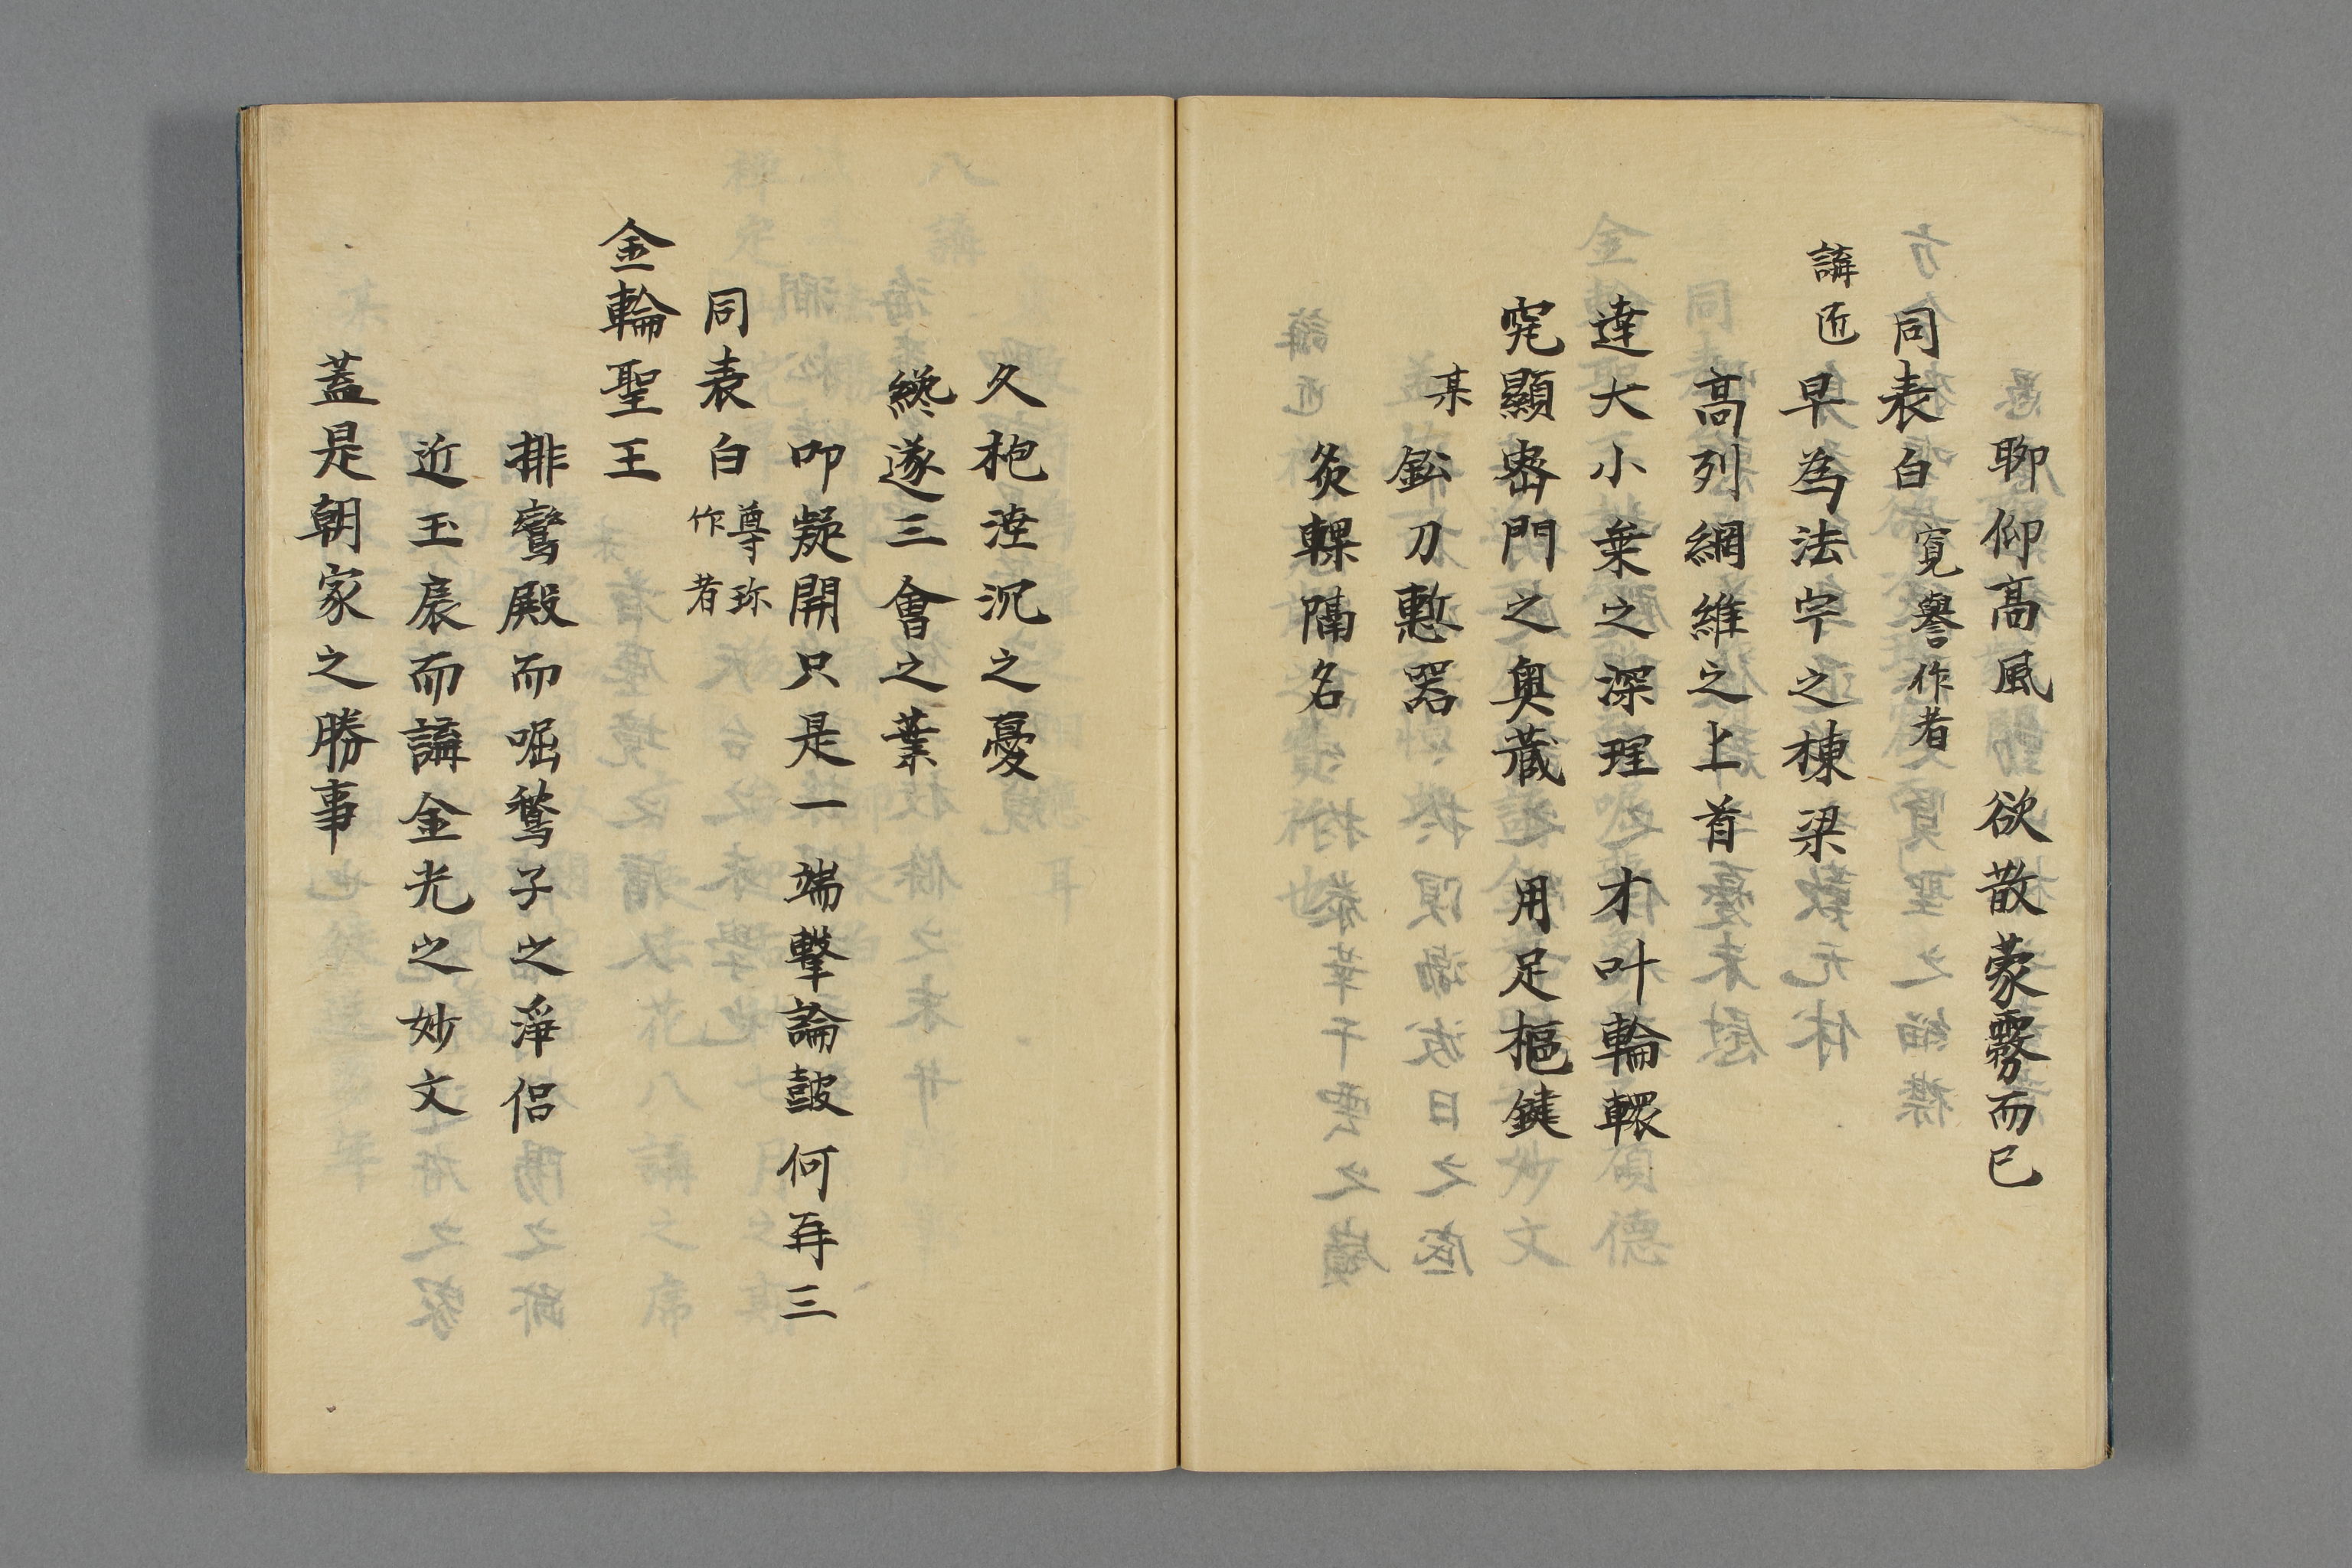 聊仰高風　欲散蒙霧而已
同表白　寛譽作者
講匠　早為法宇之棟梁
高列綱維之上首
達大小乗之深理　才叶輪轅
究顯密門之奥蔵　用足樞鍵
某　鈆刀慙器
炙輠隔名
久抱淹沉之憂
終遂三會之業
叩疑開只是一端撃論鼓何再三
同表白　尊珎作者
金輪聖王
排鸞殿而啒鶖子之淨侶
近玉扆而講金光之妙文
蓋是朝家之勝事